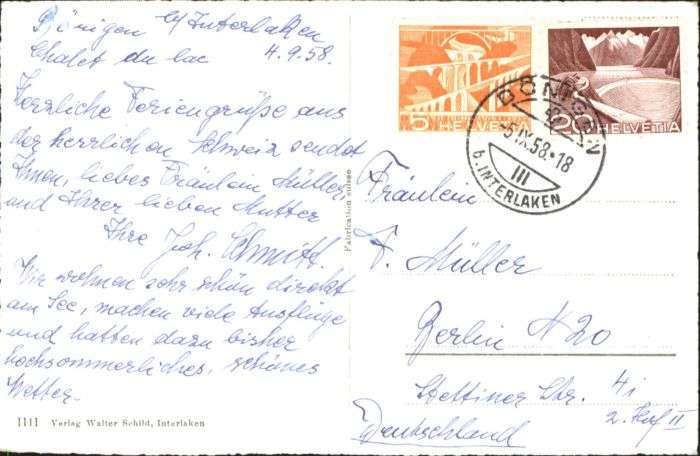 Bönigen b/ Interlaken
Chalet du lac 4.9.58.
Herzliche Feriengrüße aus
der herrlichen Schweiz sendet
Ihnen, liebes Fräulein Müller,
und Ihrer lieben Mutter
Ihre Joh. Schmitt.
Wir wohnen sehr schön direkt
am See, machen viele Ausflüge
und hatten dazu bisher
hochsommerliches, schönes
Wetter.
1111 Verlag Walter Schild, Interlaken
Fabrication suisse
5 HELVETIA
20 HELVETIA
BÖNIGEN
-5.IX.58.-18
III
b. INTERLAKEN
Fräulein
F. Müller
Berlin N 20
Stettiner Str. 4i
2. Hof II
Deutschland